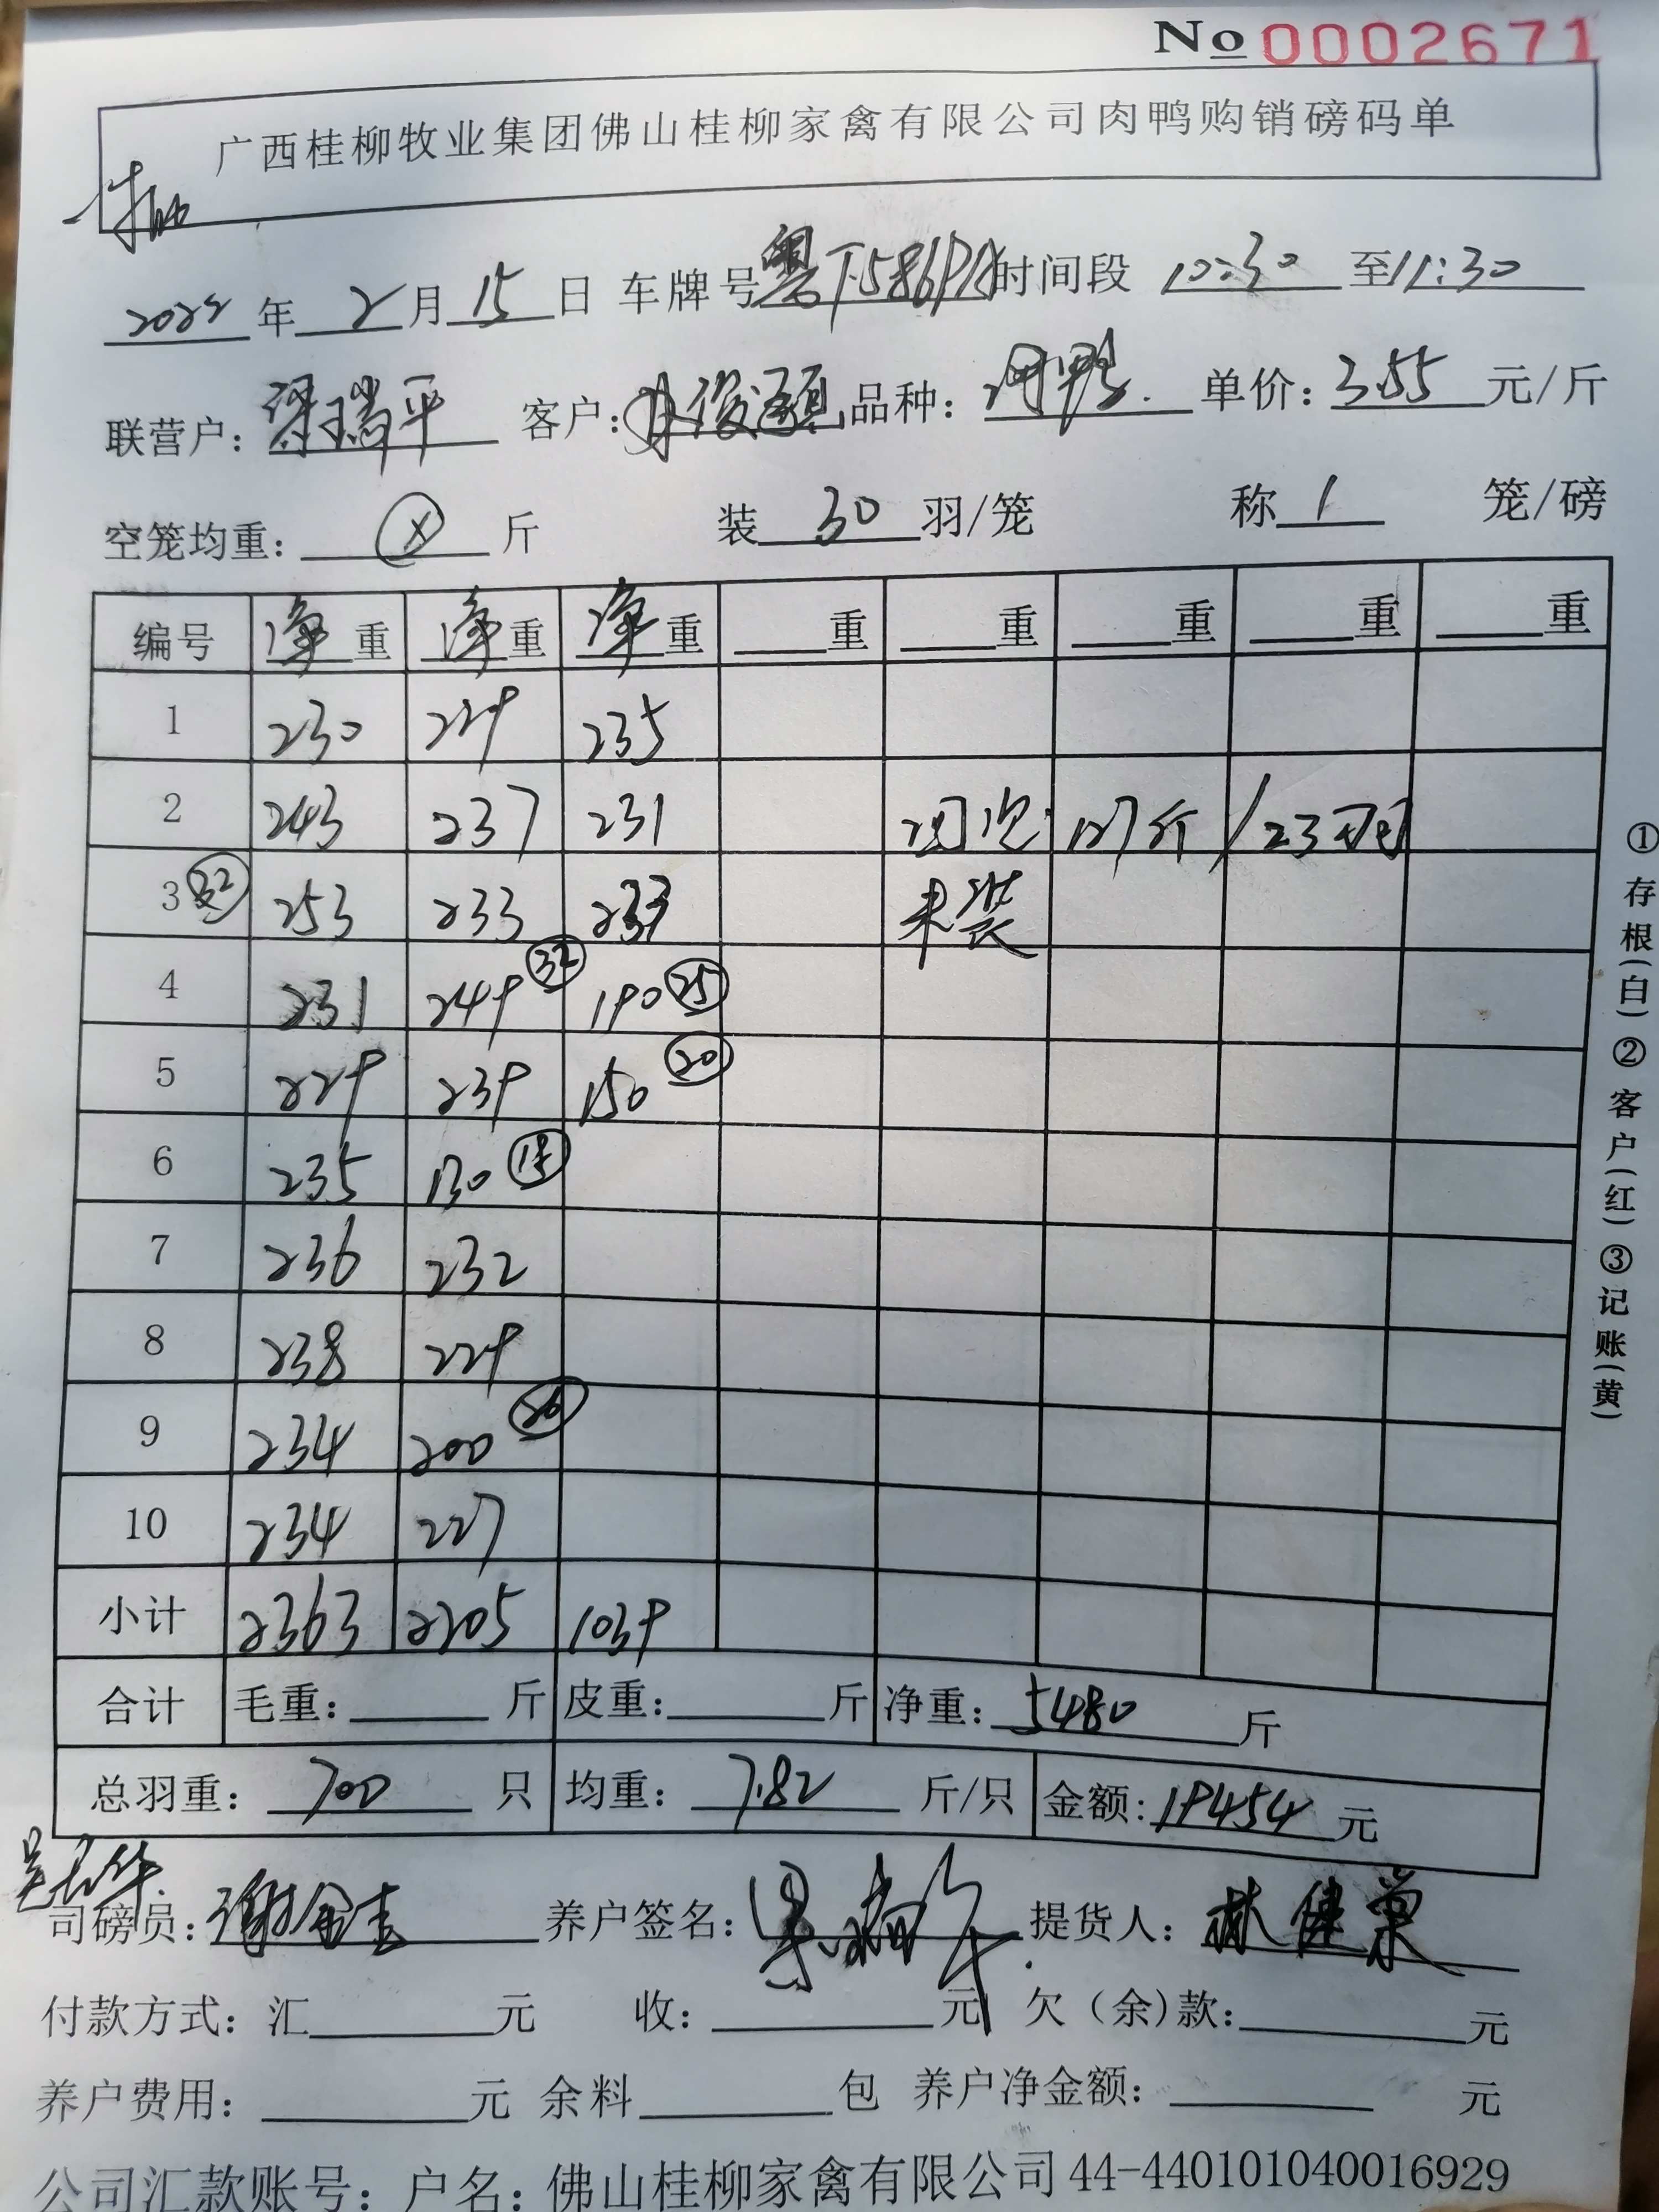 No 0002671
广西桂柳牧业集团佛山桂柳家禽有限公司肉鸭购销磅码单
2022 年 2 月 15 日 车牌号 粤 时间段 10:30 至 11:30
联营户: 梁瑞平 客户: 品种: 单价: 3.55 元/斤
空笼均重: 斤 装 30 羽/笼 称 1 笼/磅
编号 净重 净重 净重 重 重 重 重 重
1 230 229 235
2 243 237 231 127斤 / 23
3 32 253 233 233 未装
4 231 249 32 190 25
5 229 239 150 20
6 235 130
7 236 232
8 238 229
9 234 200 26
10 234 227
小计 2363 2205 1039
合计 毛重: 斤 皮重: 斤 净重: 5480 斤
总羽重: 700 只 均重: 7.82 斤/只 金额: 19454 元
司磅员: 谢金 养户签名: 梁瑞平 提货人: 林健
付款方式: 汇 元 收: 元 欠(余)款: 元
养户费用: 元 余料 包 养户净金额: 元
公司汇款账号: 户名: 佛山桂柳家禽有限公司 44-440101040016929
①存根(白)②客户(红)③记账(黄)